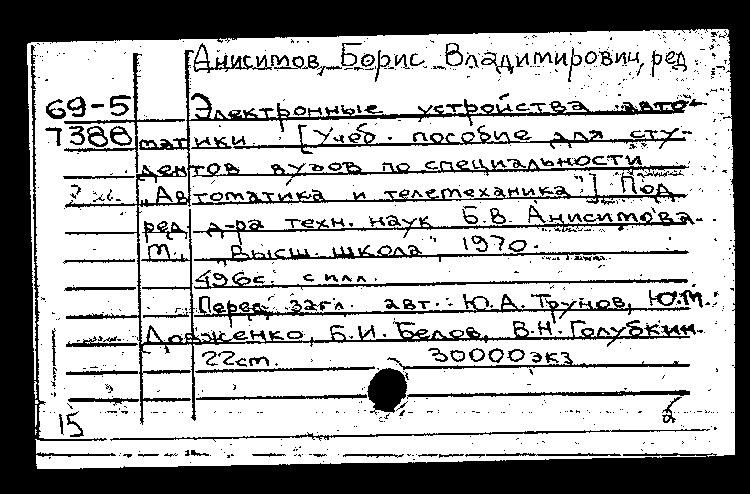 Анисимов, Борис Владимирович, ред
69-5 Электронные устройства авто-
7388 матики [Учеб. пособие для сту-
дентов вузов по специальности
„Автоматика и телемеханика"] Под
ред. д-ра техн. наук Б.В. Анисимова.
М., „Высш. школа", 1970.
496с. с илл.
Перед загл. авт.: Ю.А. Трунов, Ю.М.
Довженко, Б.И. Белов, В.Н. Голубкин
22см. 30000экз
15